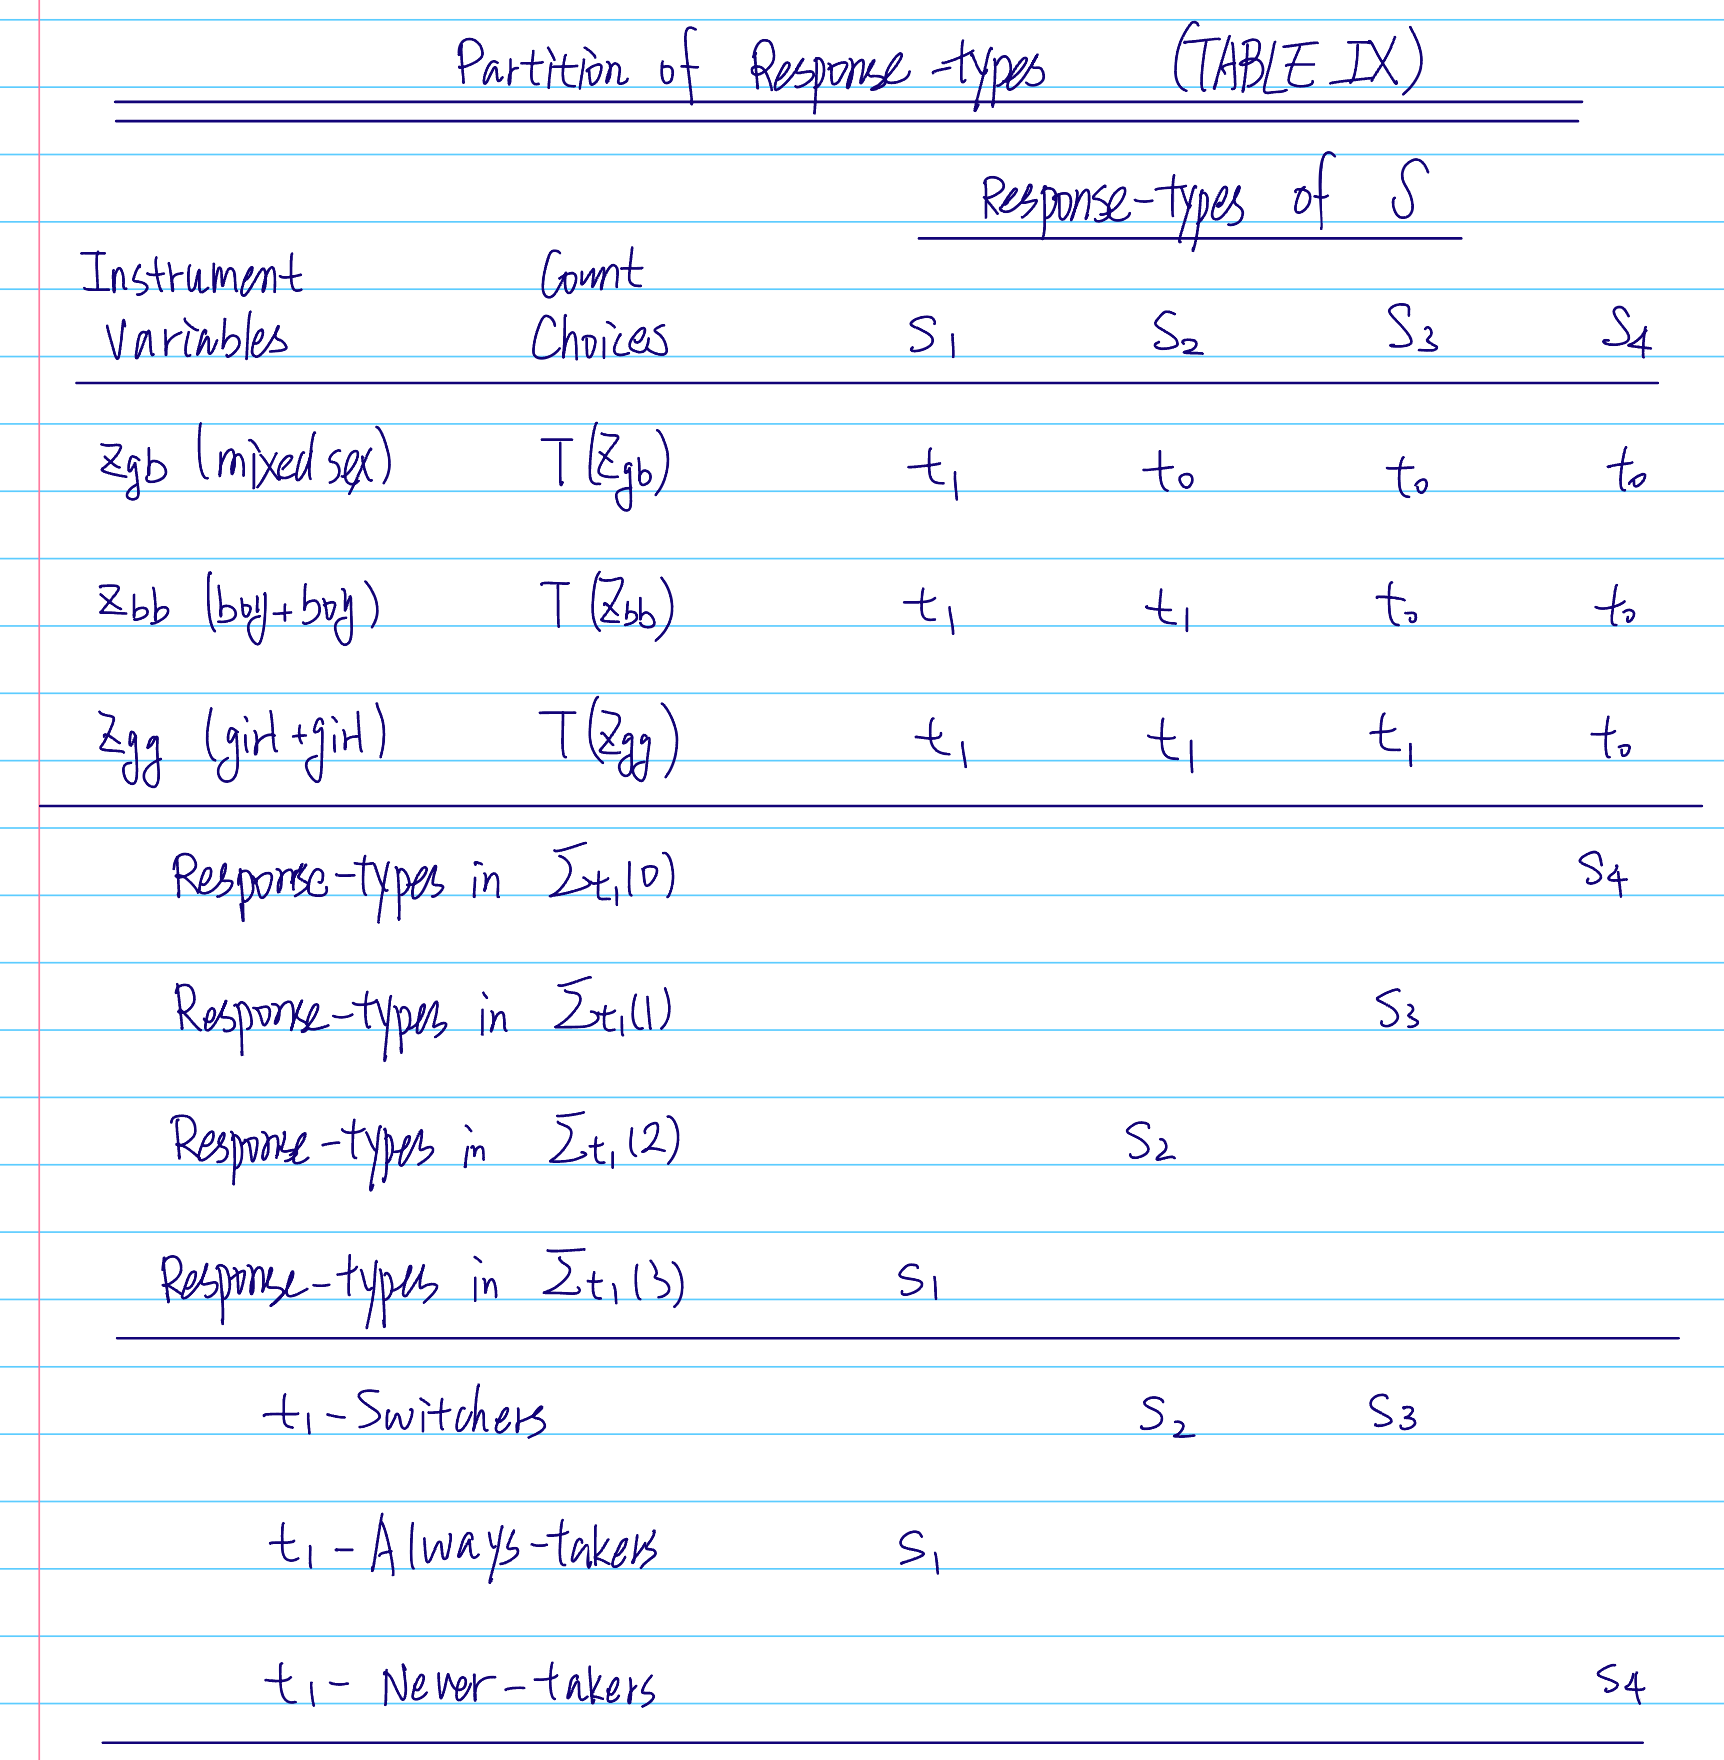 Partition of Response-types (TABLE IX)
Response-types of S
Instrument Count
Variables Choices S1 S2 S3 S4
Zgb (mixed sex) T(Zgb) t1 t0 t0 t0
Zbb (boy+boy) T(Zbb) t1 t1 t0 t0
Zgg (girl+girl) T(Zgg) t1 t1 t1 t0
Response-types in Σt1(0) S4
Response-types in Σt1(1) S3
Response-types in Σt1(2) S2
Response-types in Σt1(3) S1
t1-Switchers S2 S3
t1-Always-takers S1
t1-Never-takers S4